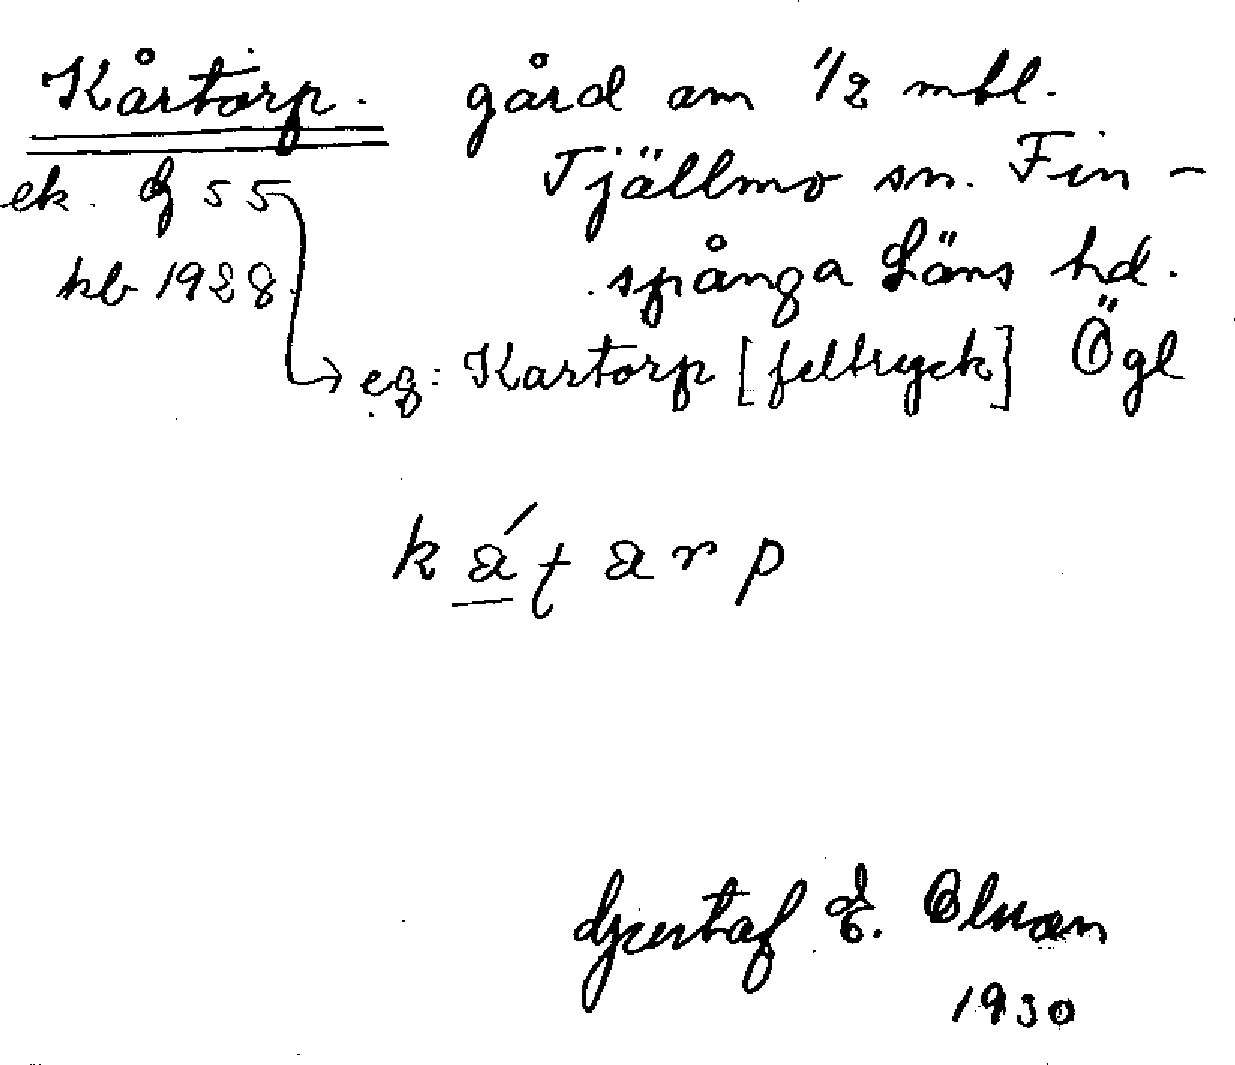 Kårtorp. gård om 1/2 mtl.
Tjällmo sn. Fin-
ek. G 55
spånga Läns hd.
kb 1928
→ eg: Kartorp [feltryck] Ögl
Gustaf E.
1930